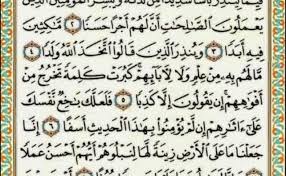 قَيِّمًا لِّيُنذِرَ بَأْسًا شَدِيدًا مِّن لَّدُنْهُ وَيُبَشِّرَ الْمُؤْمِنِينَ الَّذِينَ
يَعْمَلُونَ الصَّالِحَاتِ أَنَّ لَهُمْ أَجْرًا حَسَنًا ۝٢ مَّاكِثِينَ
فِيهِ أَبَدًا ۝٣ وَيُنذِرَ الَّذِينَ قَالُوا اتَّخَذَ اللَّهُ وَلَدًا ۝٤
مَّا لَهُم بِهِ مِنْ عِلْمٍ وَلَا لِآبَائِهِمْ كَبُرَتْ كَلِمَةً تَخْرُجُ مِنْ
أَفْوَاهِهِمْ إِن يَقُولُونَ إِلَّا كَذِبًا ۝٥ فَلَعَلَّكَ بَاخِعٌ نَّفْسَكَ
عَلَىٰ آثَارِهِمْ إِن لَّمْ يُؤْمِنُوا بِهَٰذَا الْحَدِيثِ أَسَفًا ۝٦ إِنَّا
جَعَلْنَا مَا عَلَى الْأَرْضِ زِينَةً لَّهَا لِنَبْلُوَهُمْ أَيُّهُمْ أَحْسَنُ عَمَلًا